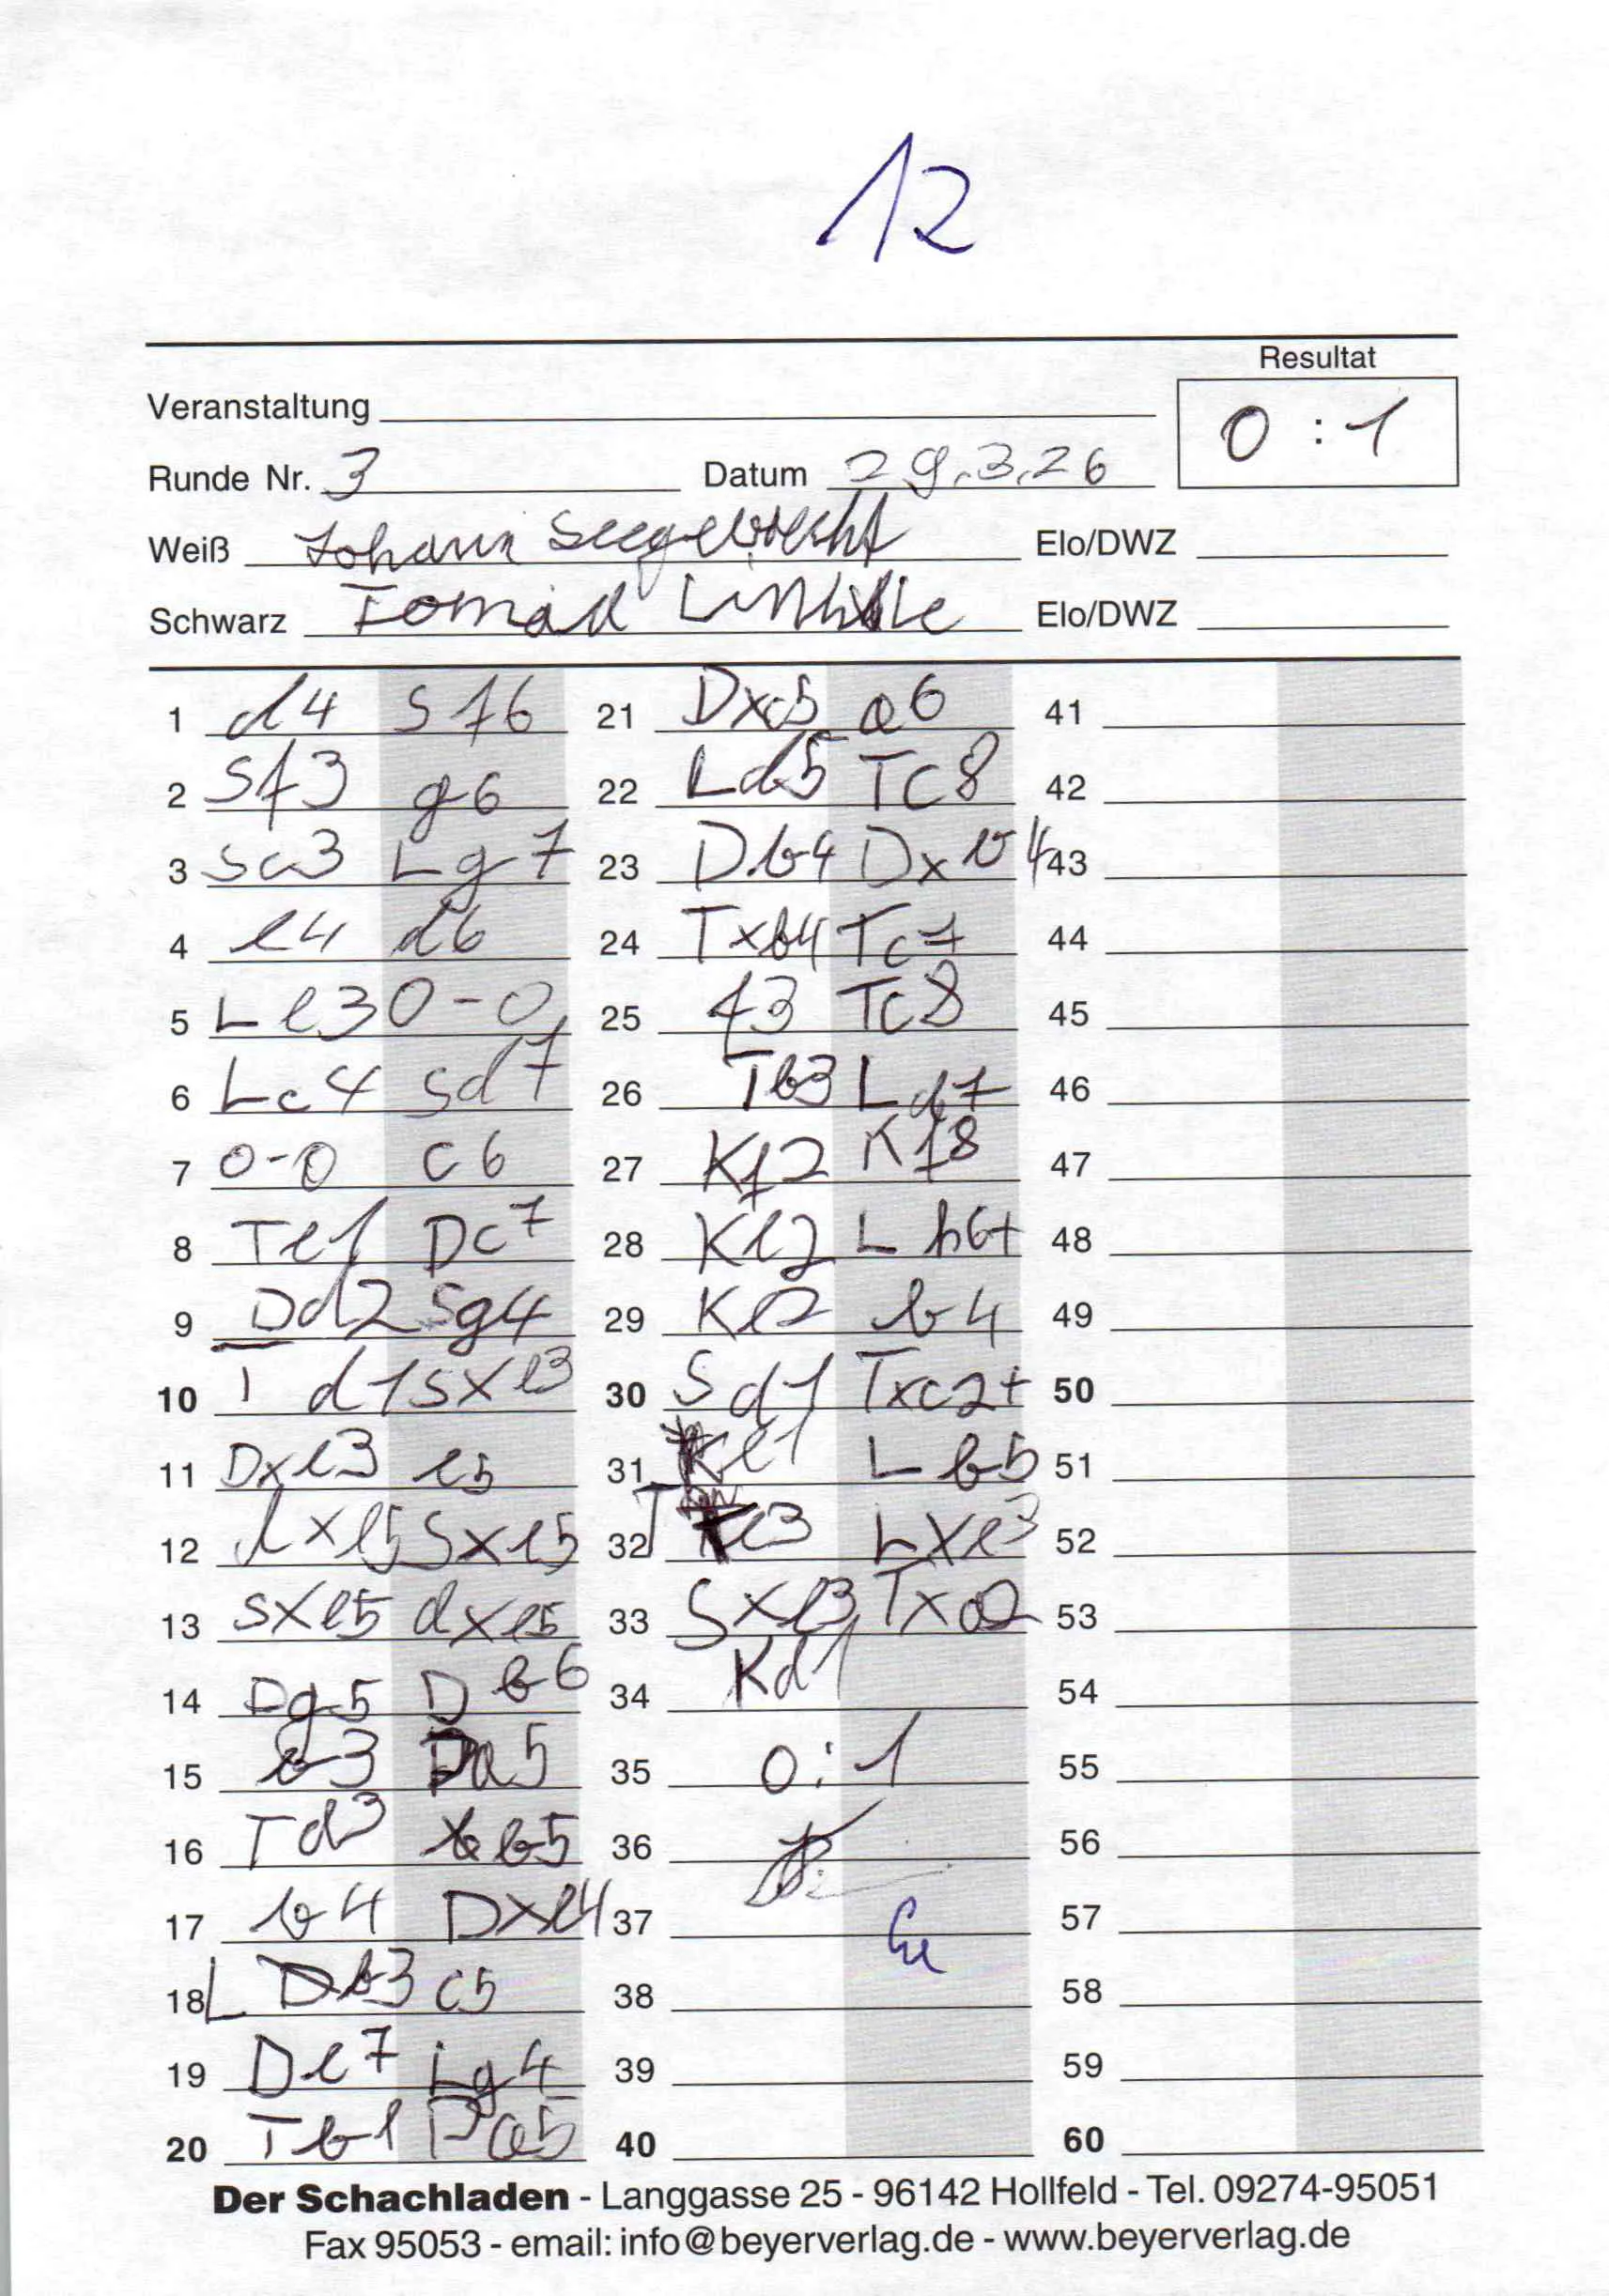 12
Resultat
Veranstaltung
0 : 1
Runde Nr. 3 Datum 29.3.26
Weiß Johann Seegebrecht Elo/DWZ
Schwarz Elo/DWZ
1 d4 Sf6 21 Dxc5 a6 41
2 Sf3 g6 22 Ld5 Tc8 42
3 Sc3 Lg7 23 Db4 Dxb4 43
4 e4 d6 24 Txb4 Tc7 44
5 Le3 0-0 25 f3 Tc8 45
6 Lc4 Sd7 26 Tb3 Ld7 46
7 0-0 c6 27 Kf2 Kf8 47
8 Te1 Dc7 28 Ke2 Lh6+ 48
9 Dd2 Sg4 29 Ke2 b4 49
10 T d1 Sxe3 30 Sd1 Txc2+ 50
11 Dxe3 e5 31 Ke1 Lb5 51
12 dxe5 Sxe5 32 Te3 Lxe3 52
13 Sxe5 dxe5 33 Sxe3 Txa2 53
14 Dg5 Db6 34 Kd1 54
15 b3 Da5 35 0:1 55
16 Td3 b5 36 56
17 b4 Dxb4 37 57
18 Lb3 c5 38 58
19 De7 Lg4 39 59
20 Tb1 Da5 40 60
Der Schachladen - Langgasse 25 - 96142 Hollfeld - Tel. 09274-95051
Fax 95053 - email: info@beyerverlag.de - www.beyerverlag.de